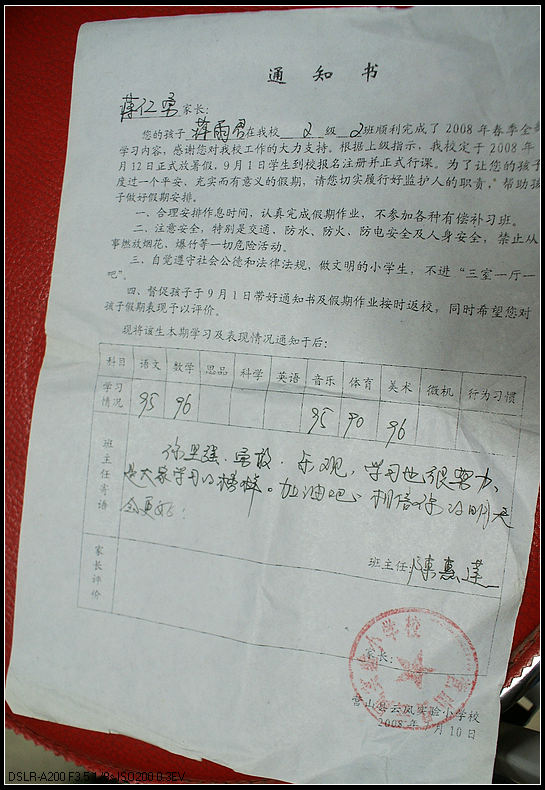 通知书
蒋仁勇家长:
您的孩子 蒋雨君 在我校 2 级 2 班顺利完成了2008年春季全部
学习内容,感谢您对我校工作的大力支持。根据上级指示,我校定于2008年
月12日正式放暑假,9月1日学生到校报名注册并正式行课。为了让您的孩子
度过一个平安、充实而有意义的假期,请您切实履行好监护人的职责,帮助孩
子做好假期安排。
一、合理安排作息时间,认真完成假期作业,不参加各种有偿补习班。
二、注意安全,特别是交通、防水、防火、防电安全及人身安全,禁止从
事燃放烟花、爆竹等一切危险活动。
三、自觉遵守社会公德和法律法规,做文明的小学生,不进“三室一厅一
吧”。
四、督促孩子于9月1日带好通知书及假期作业按时返校,同时希望您对
孩子假期表现予以评价。
现将该生本期学习及表现情况通知于后:
科目 语文 数学 思品 科学 英语 音乐 体育 美术 微机 行为习惯
学习情况 95 96 95 90 96
班主任寄语 你坚强、勇敢、乐观,学习也很努力,
是大家学习的榜样。加油吧!相信你的明天
会更好!
班主任:陈惠莲
家长评价
家长:
营山县云凤实验小学校
2008年 月10日
DSLR-A200 F3.5 ISO200 0.3EV